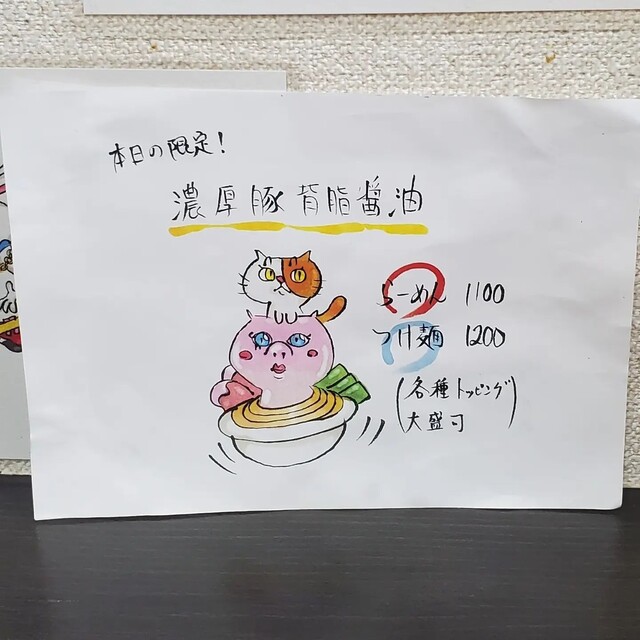 本日の限定!
濃厚豚背脂醤油
らーめん 1100
つけ麺 1200
(各種トッピング
大盛可)